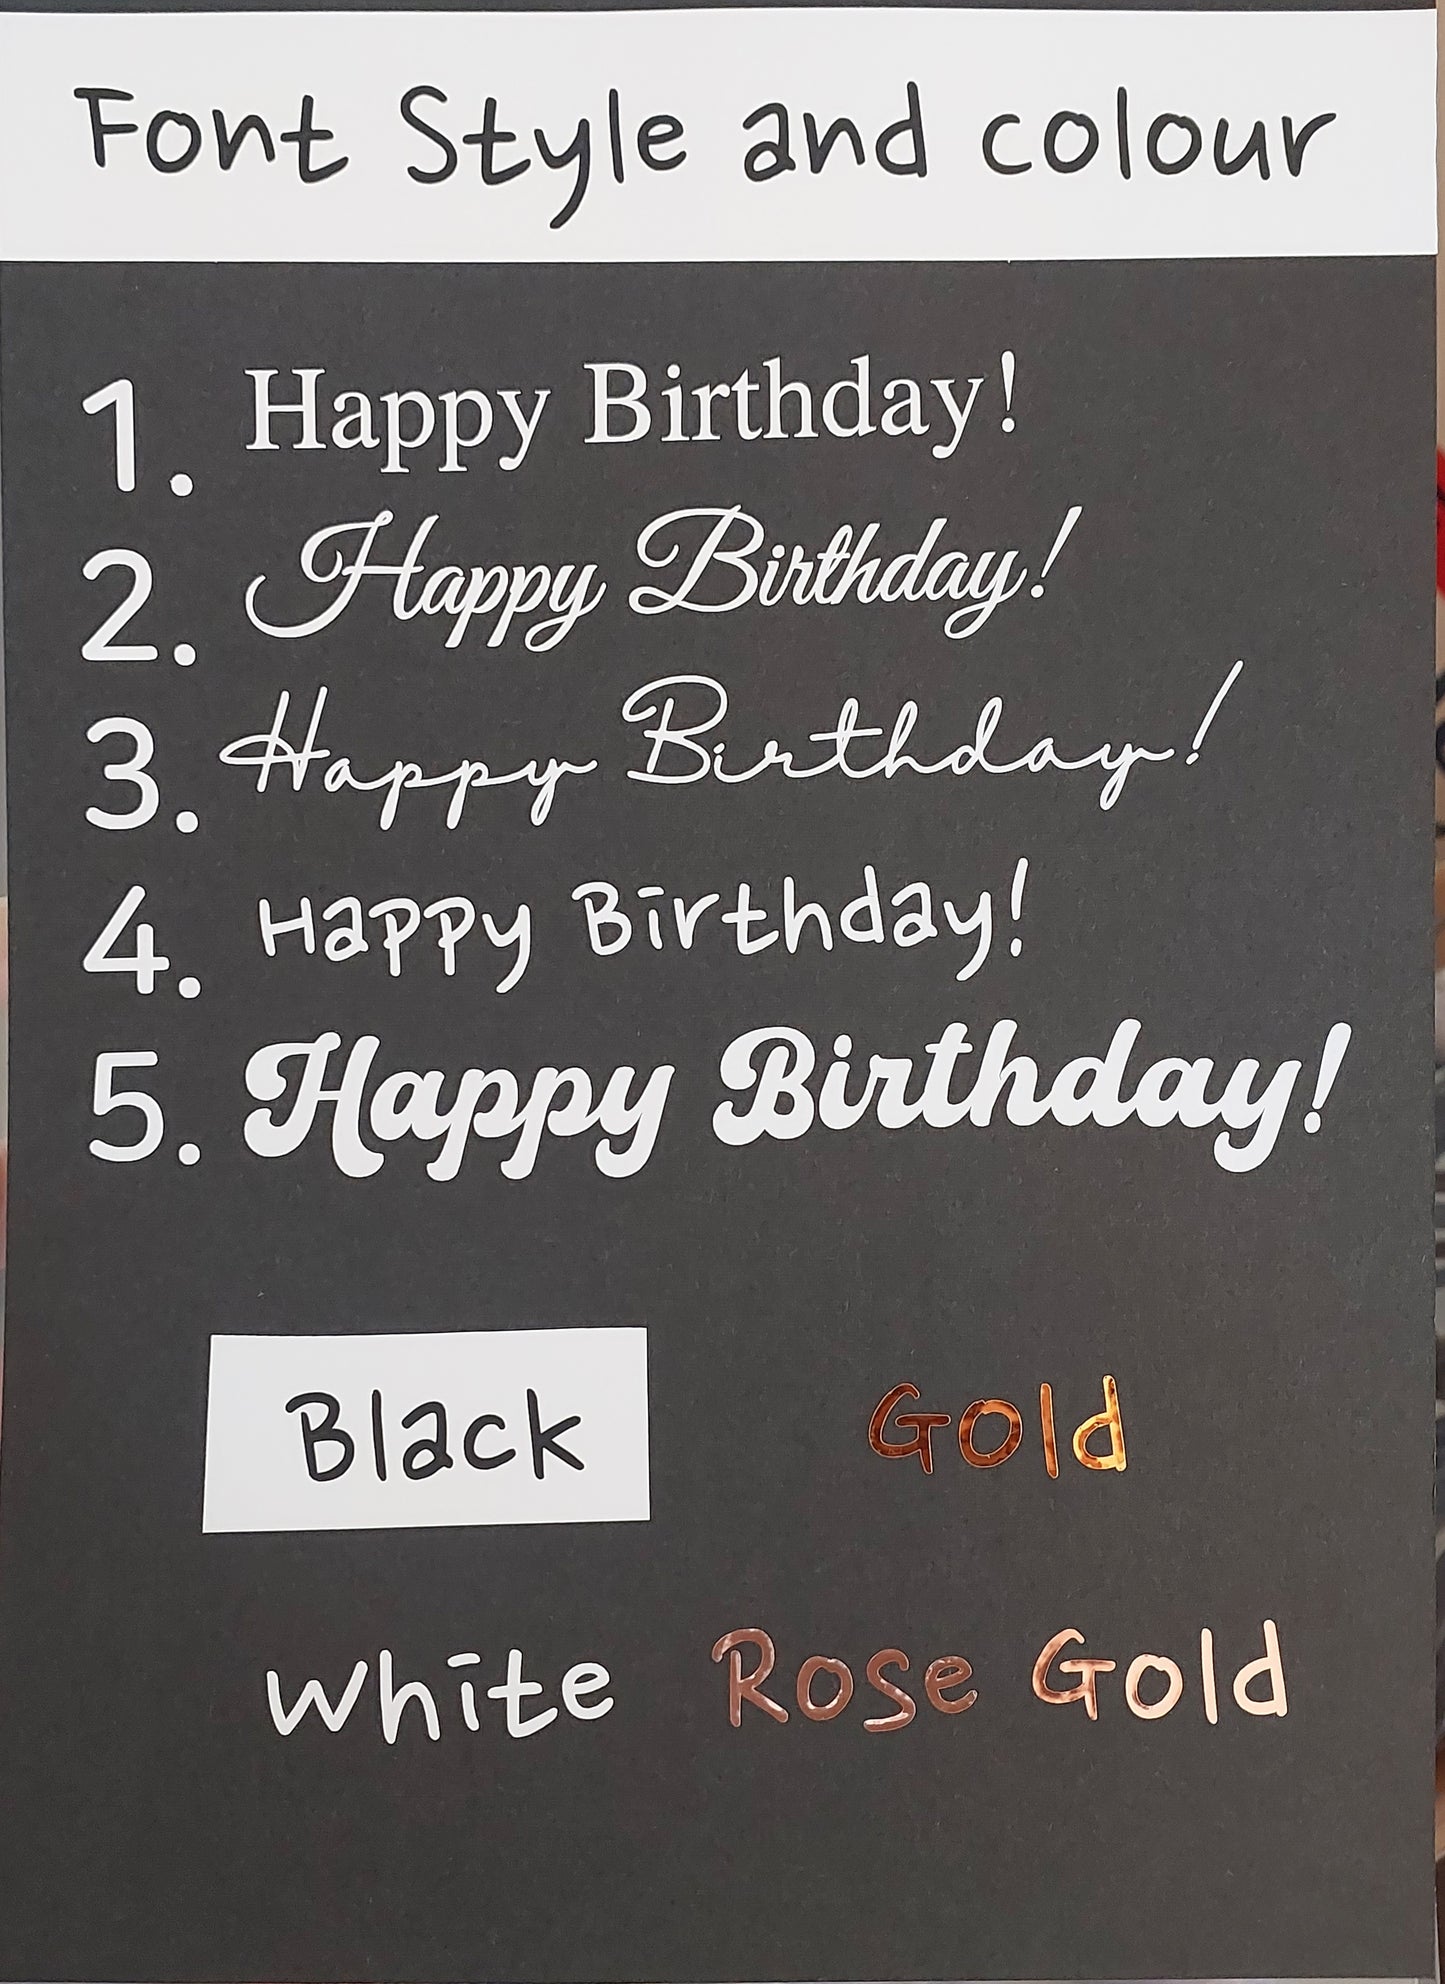 Font Style and colour
1. Happy Birthday!
2. Happy Birthday!
3. Happy Birthday!
4. Happy Birthday!
5. Happy Birthday!
Black Gold
White Rose Gold